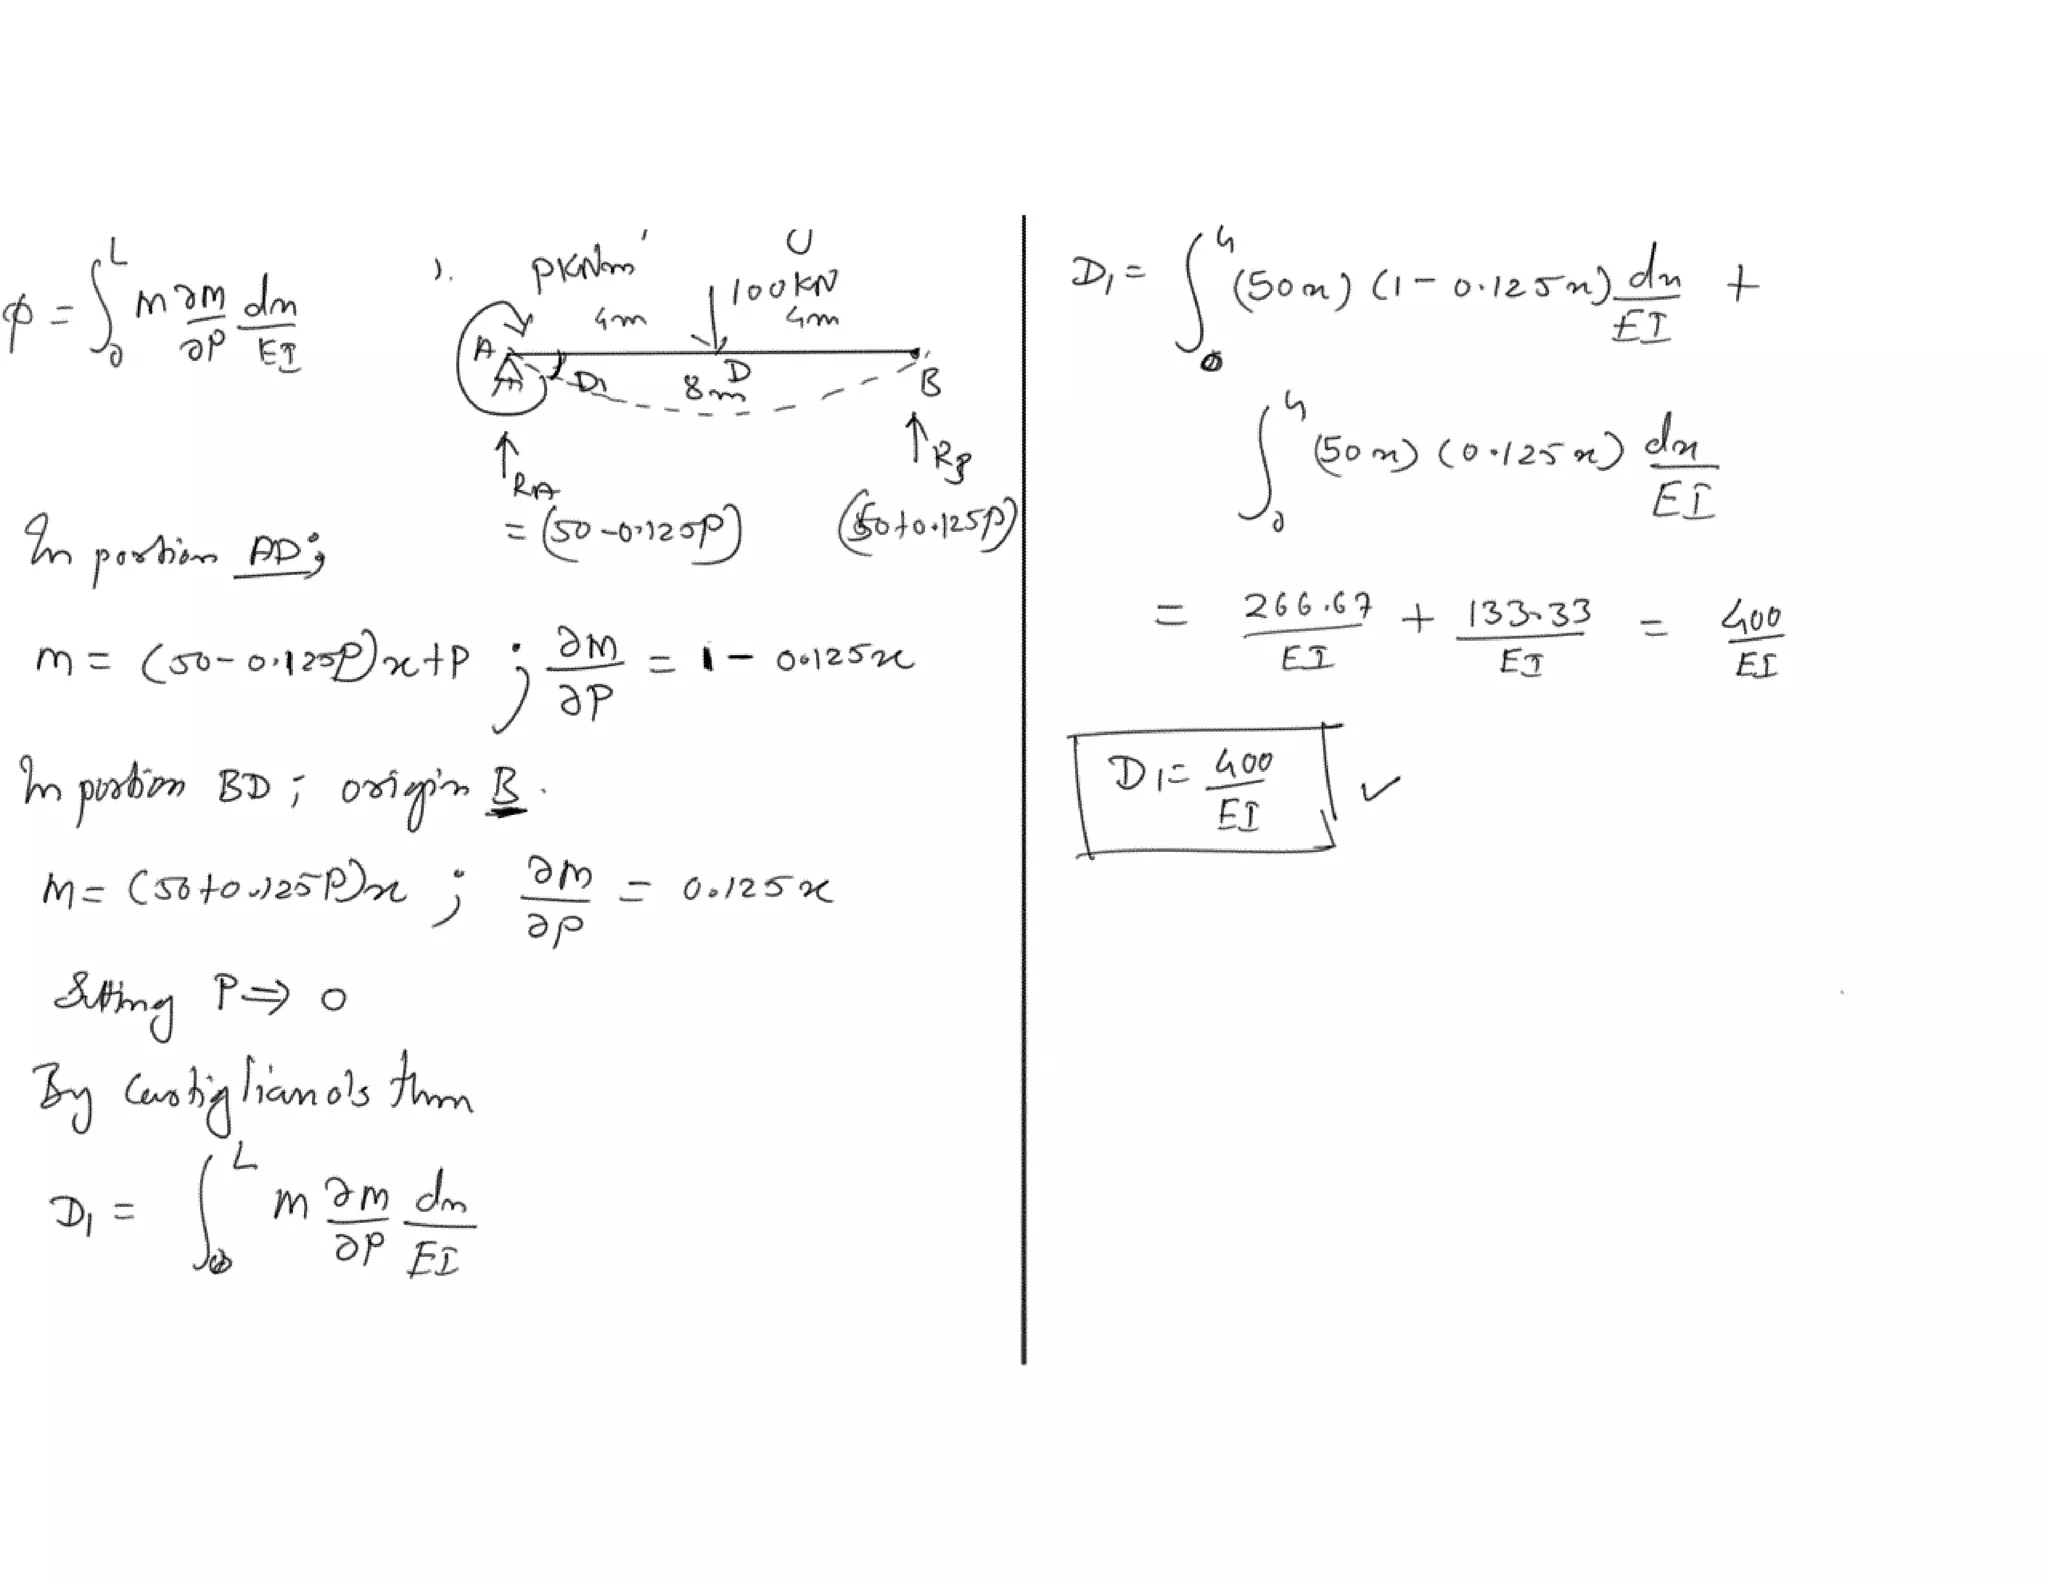 φ = ∫₀ᴸ m ∂m/∂P dx/EI
). PkNm' U
100kN
4m 4m
A D
D₁ 8m B
↑RA ↑RB
= (50-0.125P) (50+0.125P)
In portion AD;
m = (50-0.125P)x+P ; ∂m/∂P = 1 - 0.125x
In portion BD ; origin B.
M = (50+0.125P)x ; ∂m/∂P = 0.125x
Setting P ⇒ 0
By Castigliano's thm
D₁ = ∫₀ᴸ m ∂m/∂P dx/EI
D₁ = ∫₀⁴ (50x) (1 - 0.125x) dx/EI +
∫₀⁴ (50x) (0.125x) dx/EI
= 266.67/EI + 133.33/EI = 400/EI
D₁ = 400/EI ✓